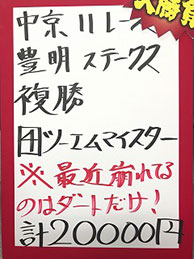 大勝
中京11レース
豊明ステークス
複勝
団ツーエムマイスター
※最近崩れてる
のはダートだけ!
計20000円